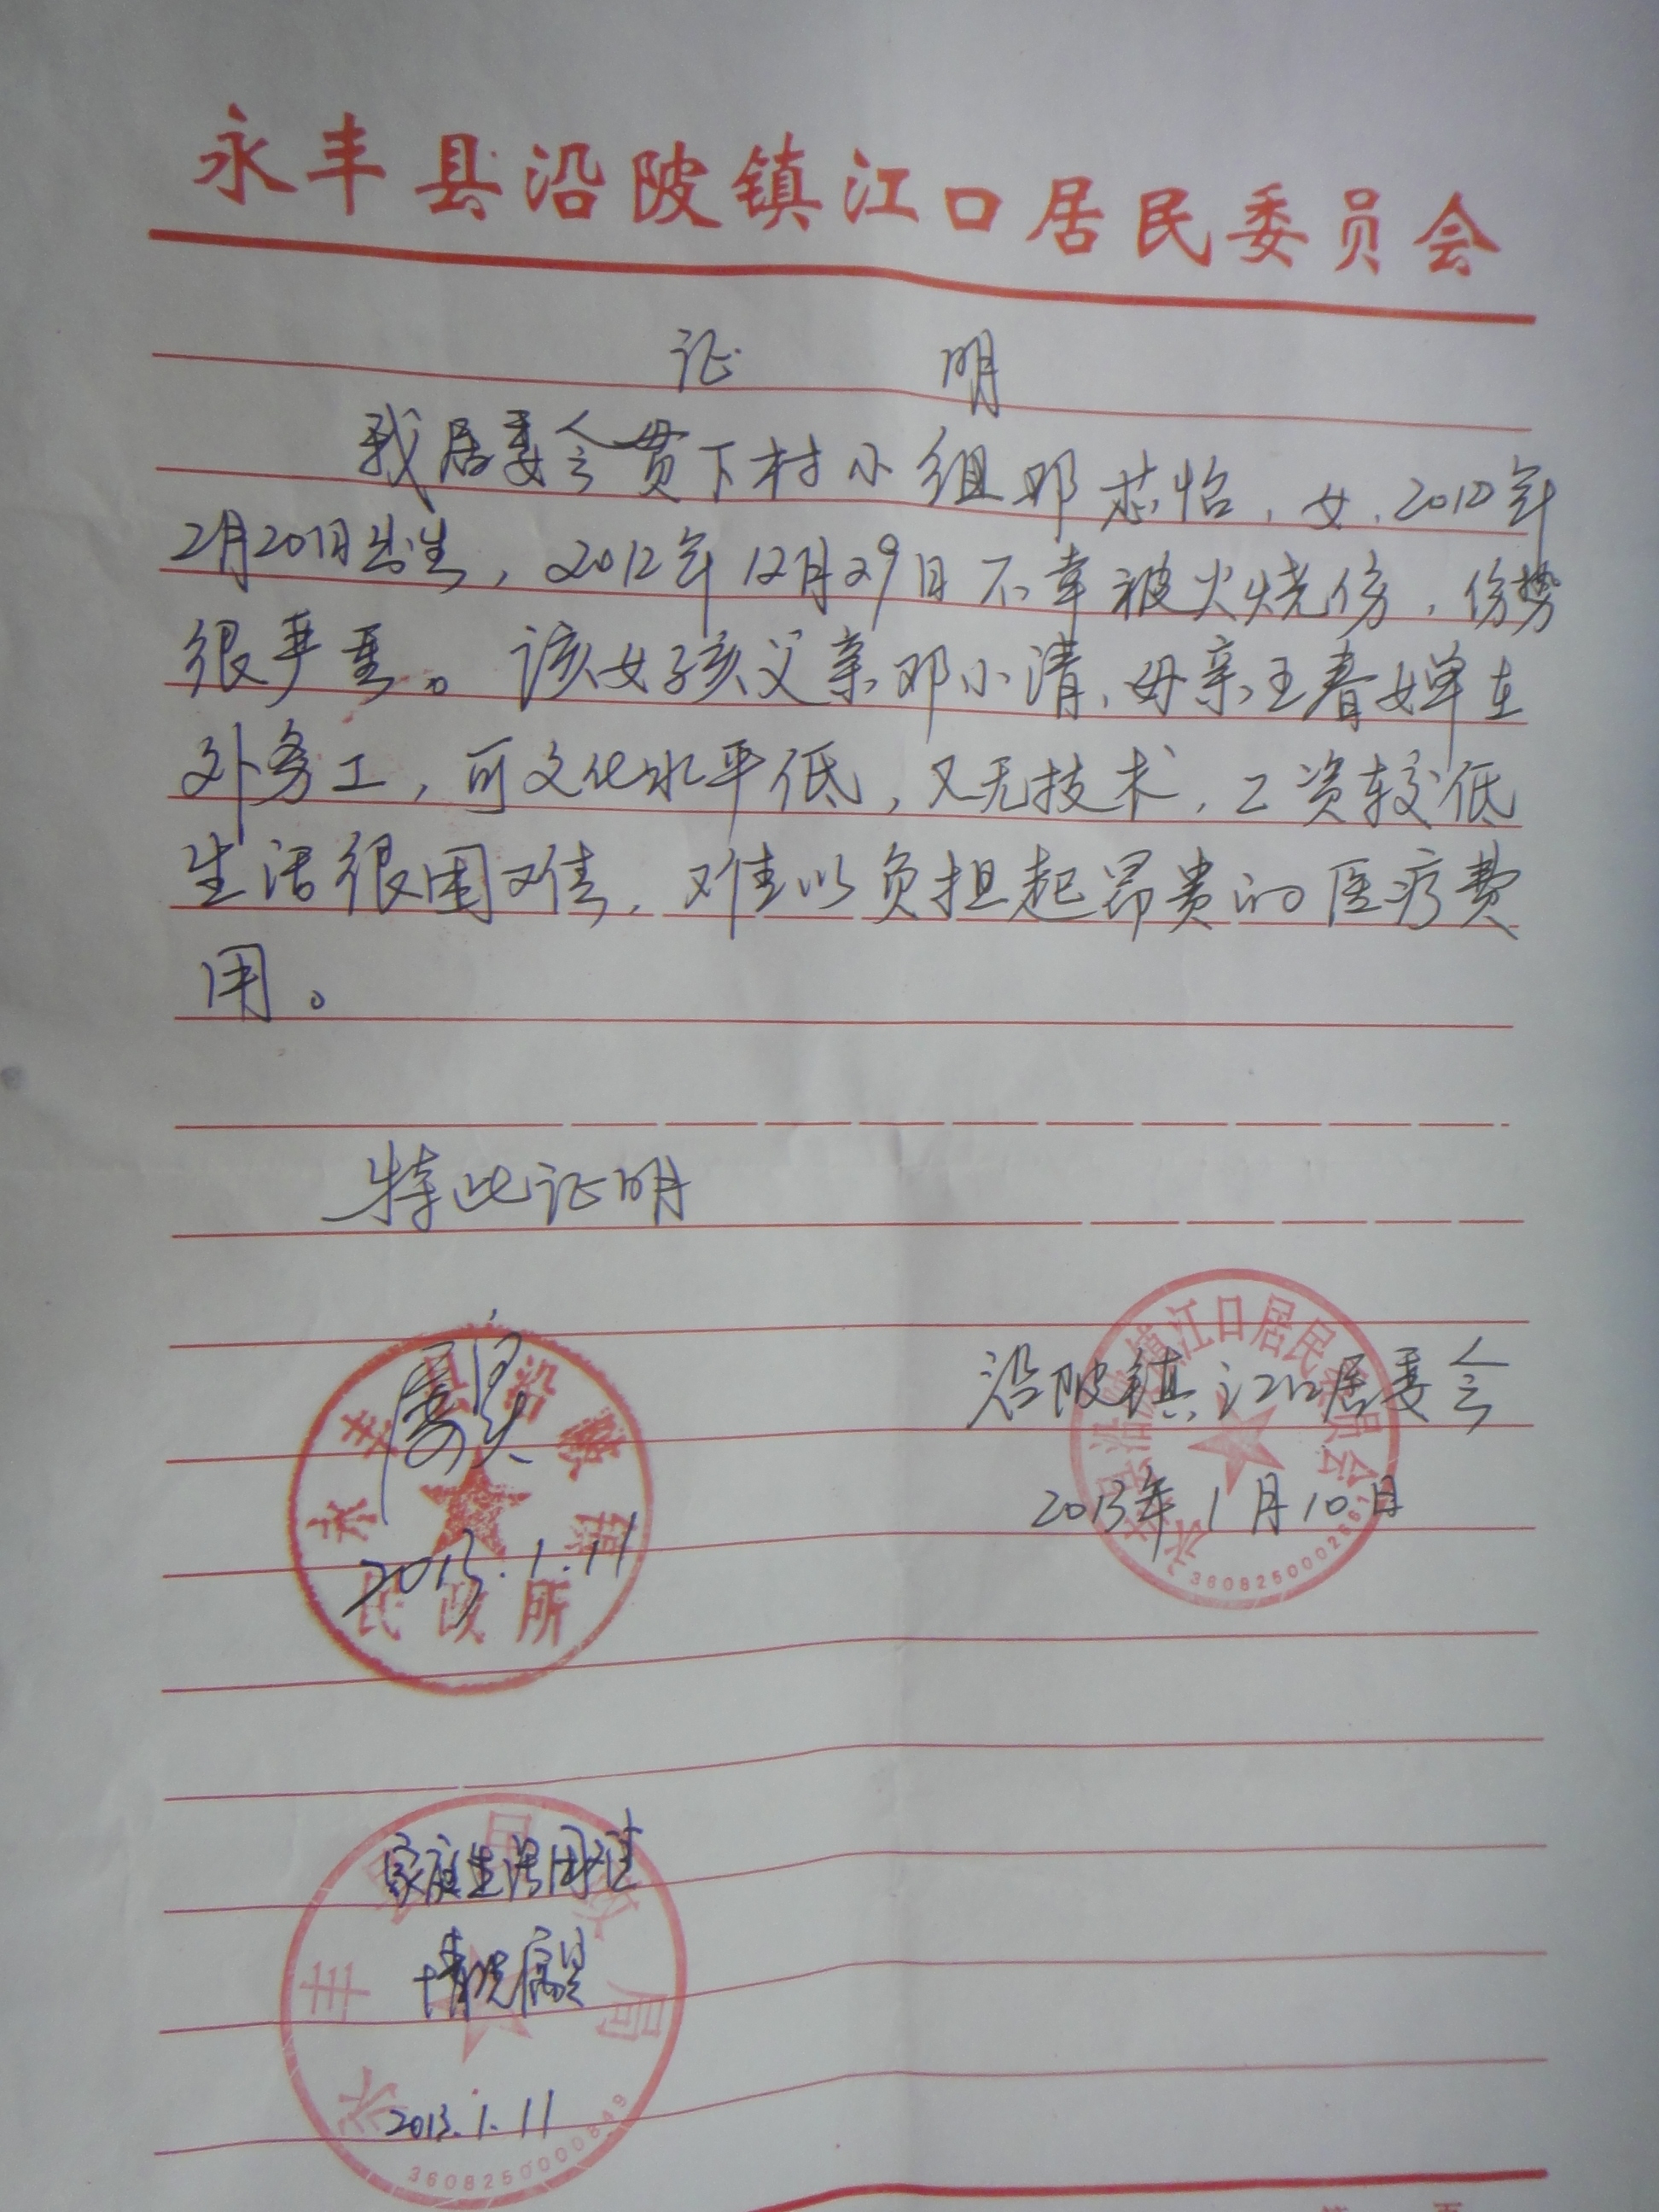 永丰县沿陂镇江口居民委员会
证 明
我居委会贯下村小组邓芯怡，女，2012年
2月20日出生，2012年12月29日不幸被火烧伤，伤势
很严重。该女孩父亲邓小清，母亲王春婵在
外务工，可文化水平低，又无技术，工资较低
生活很困难，难以负担起昂贵的医疗费
用。
特此证明
沿陂镇江口居委会
2013年1月10日
永丰县沿陂镇江口居民委员会
属实
2013.1.11
永丰县沿陂镇
民政所
家庭生活困难
情况属实
2013.1.11
永丰县民政局
3608250000849